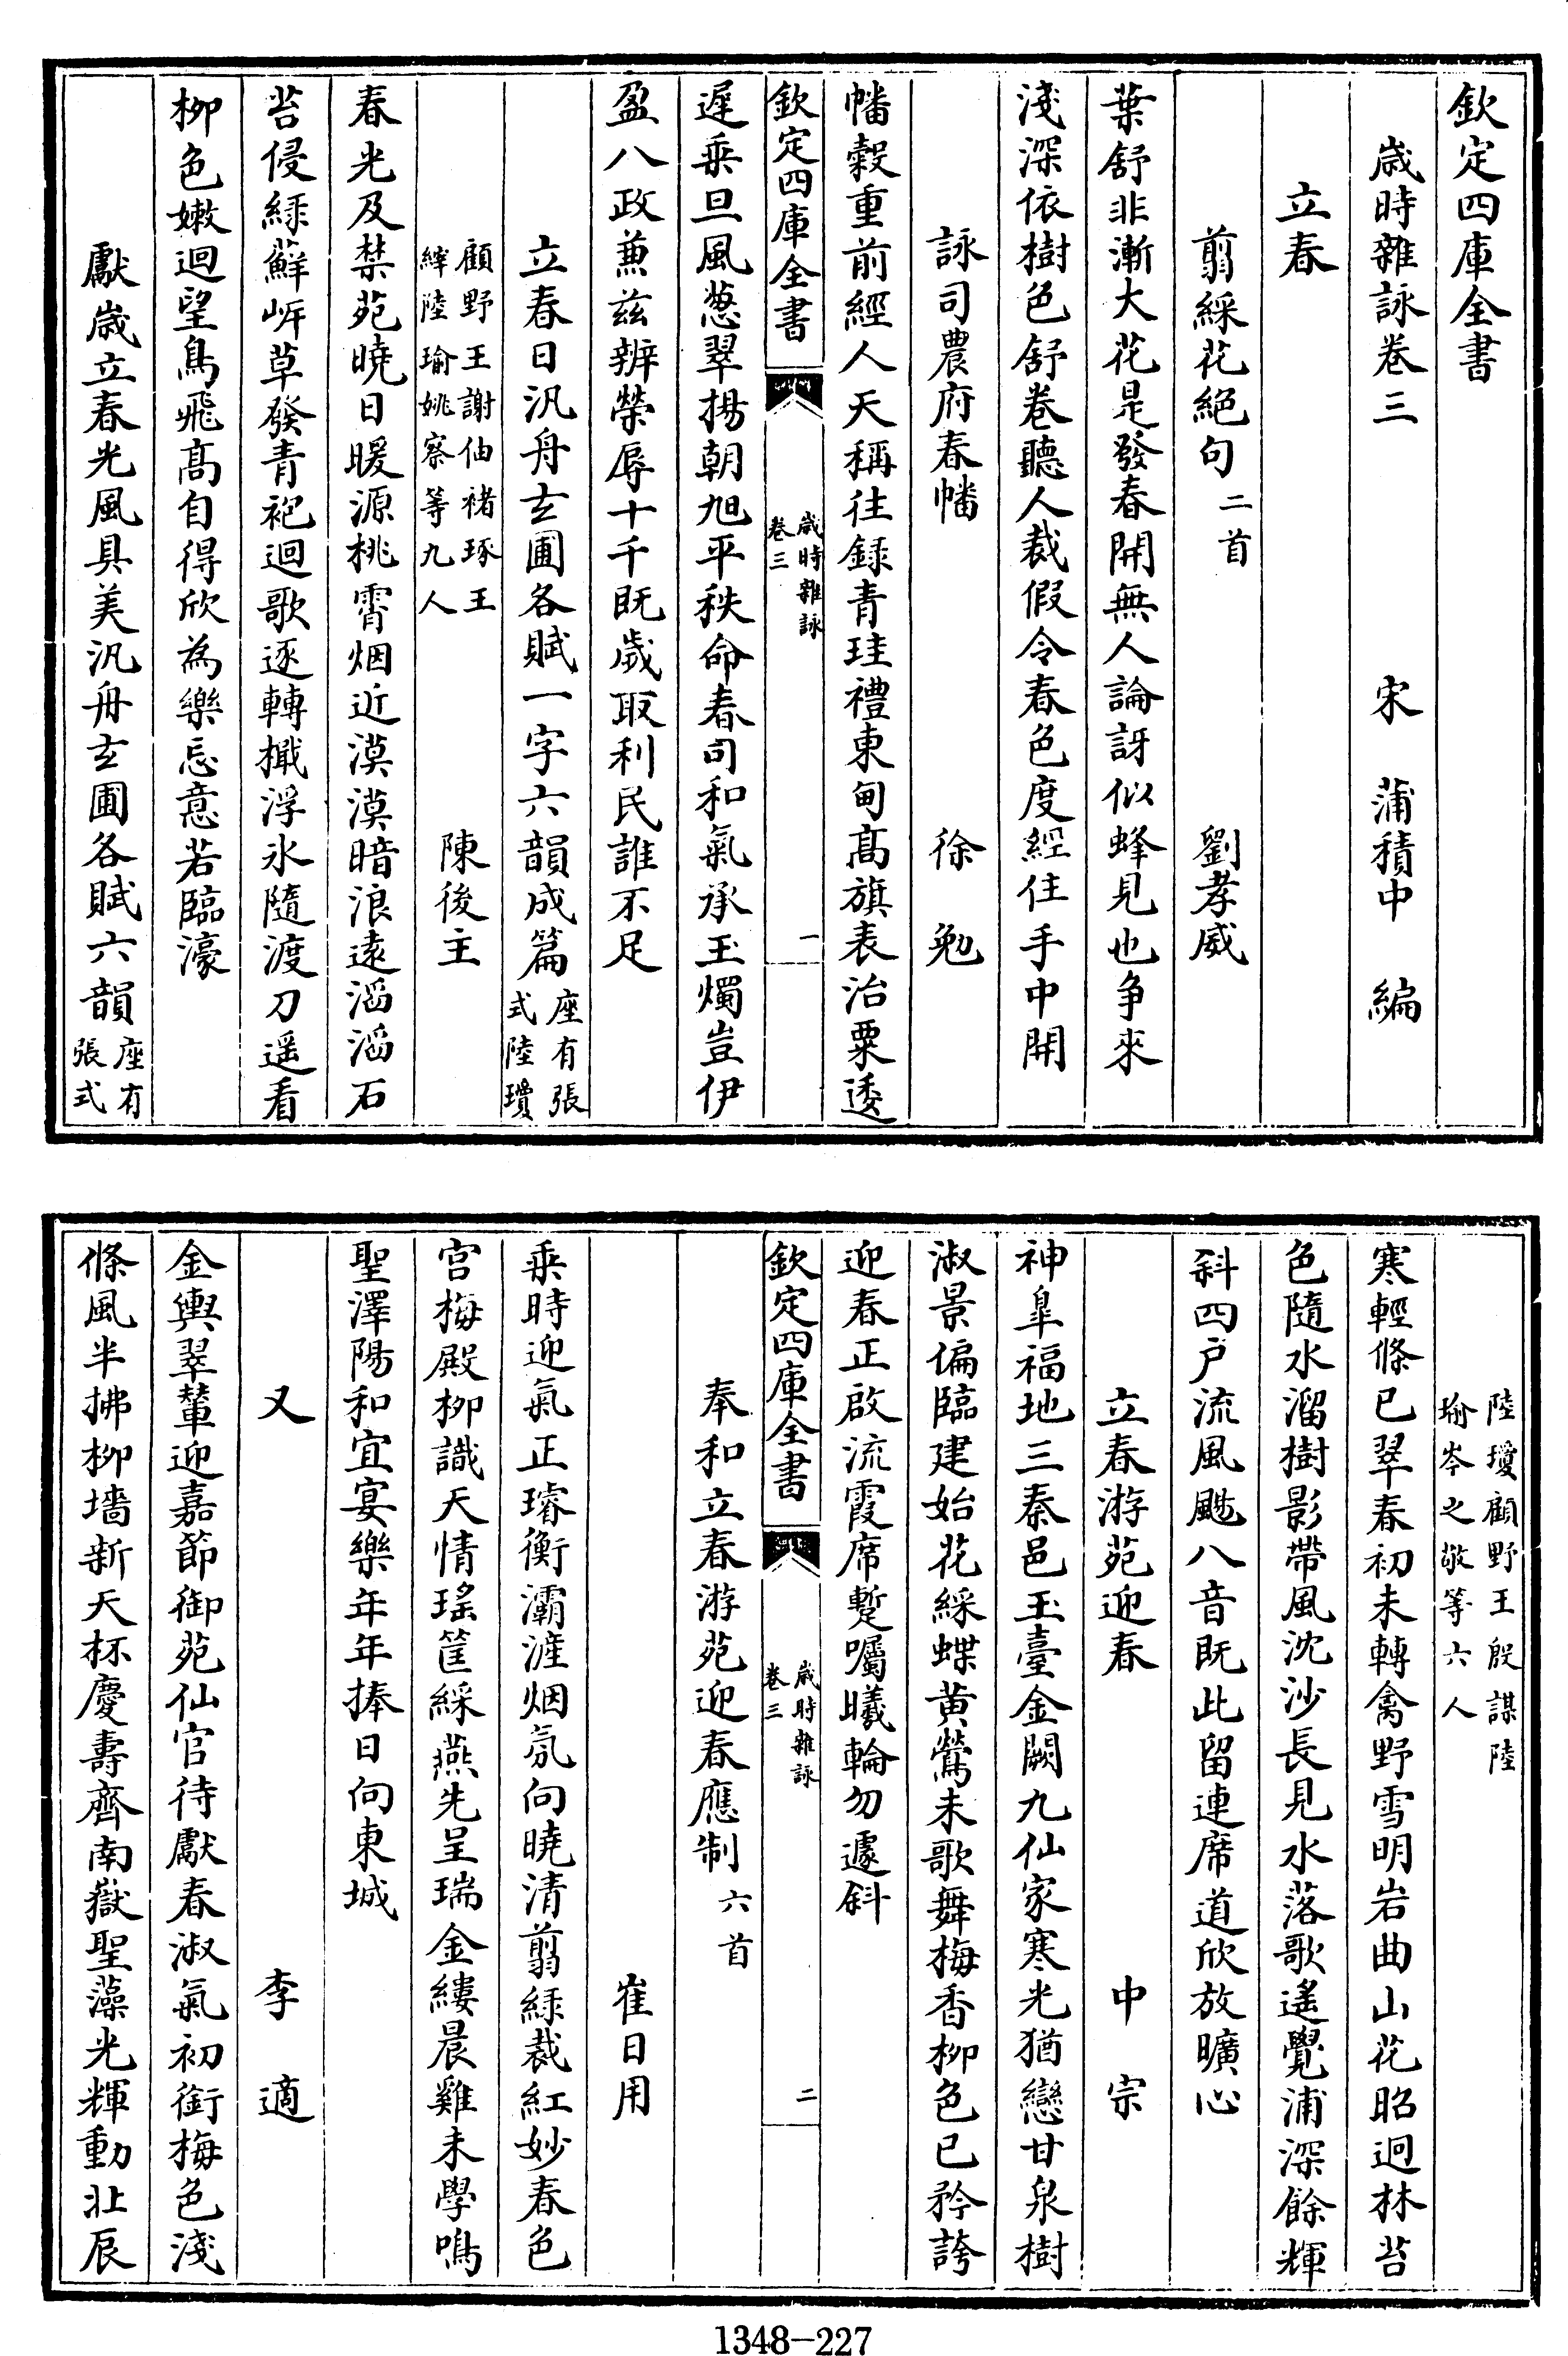 欽定四庫全書
歲時雜詠卷三　宋　蒲積中　編
立春
翦綵花絕句二首　劉孝威
葉舒非漸大花是發春開無人論訝似蜂見也争來
淺深依樹色舒卷聽人裁假令春色度經住手中開
詠司農府春幡　徐勉
幡轂重前經人天稱往録青珪禮東甸髙旗表治粟逶
欽定四庫全書　歲時雜詠卷三　一
遲乗旦風葱翠揚朝旭平秩命春司和氣承玉燭豈伊
盈八政兼兹辨榮辱十千既歲取利民誰不足
立春日汎舟𤣥圃各賦一字六韻成篇座有張式陸瓊
顧野王謝伷褚琢王縡陸瑜姚察等九人　陳後主
春光及禁苑曉日暖源桃霄烟近漠漠暗浪遠滔滔石
苔侵緑蘚㟁草發青袍迴歌逐轉檝浮氷隨渡刀遥看
柳色嫩迴望鳥飛髙自得欣為樂忘意若臨濠
獻歲立春光風具美汎舟𤣥圃各賦六韻座有張式
陸瓊顧野王殷謀陸瑜岑之敬等六人
寒輕條已翠春初未轉禽野雪明岩曲山花昭迥林苔
色隨水溜樹影帶風沈沙長見水落歌遙覺浦深餘輝
斜四户流風颺八音既此留連席道欣放曠心
立春游苑迎春　中宗
神臯福地三秦邑玉臺金闕九仙家寒光猶戀甘泉樹
淑景偏臨建始花綵蝶黄鶯未歌舞梅香柳色已矜誇
迎春正啟流霞席暫囑曦輪勿遽斜
欽定四庫全書　歲時雜詠卷三　二
奉和立春游苑迎春應制六首
崔日用
乗時迎氣正璿衡灞滻烟氛向曉清翦緑裁紅妙春色
宫梅殿柳識天情瑤筐綵燕先呈瑞金縷晨雞未學鳴
聖澤陽和宜宴樂年年捧日向東城
又　李適
金輿翠輦迎嘉節御苑仙官待獻春淑氣初銜梅色淺
條風半拂柳墻新天杯慶壽齊南嶽聖藻光輝動北辰
1348-227